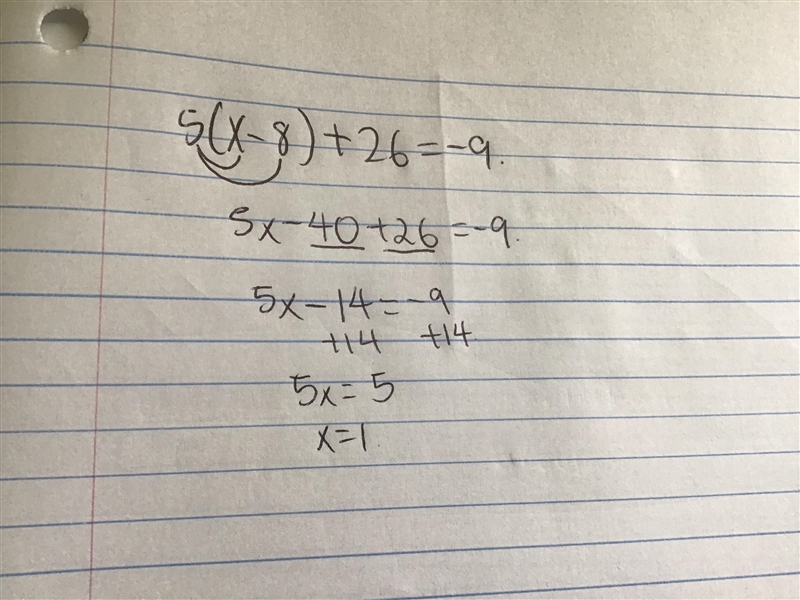 5(x-8)+26=-9.
5x-40+26=-9.
5x-14=-9
+14 +14.
5x=5
x=1.